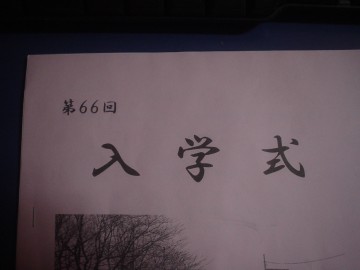 第66回
入学式